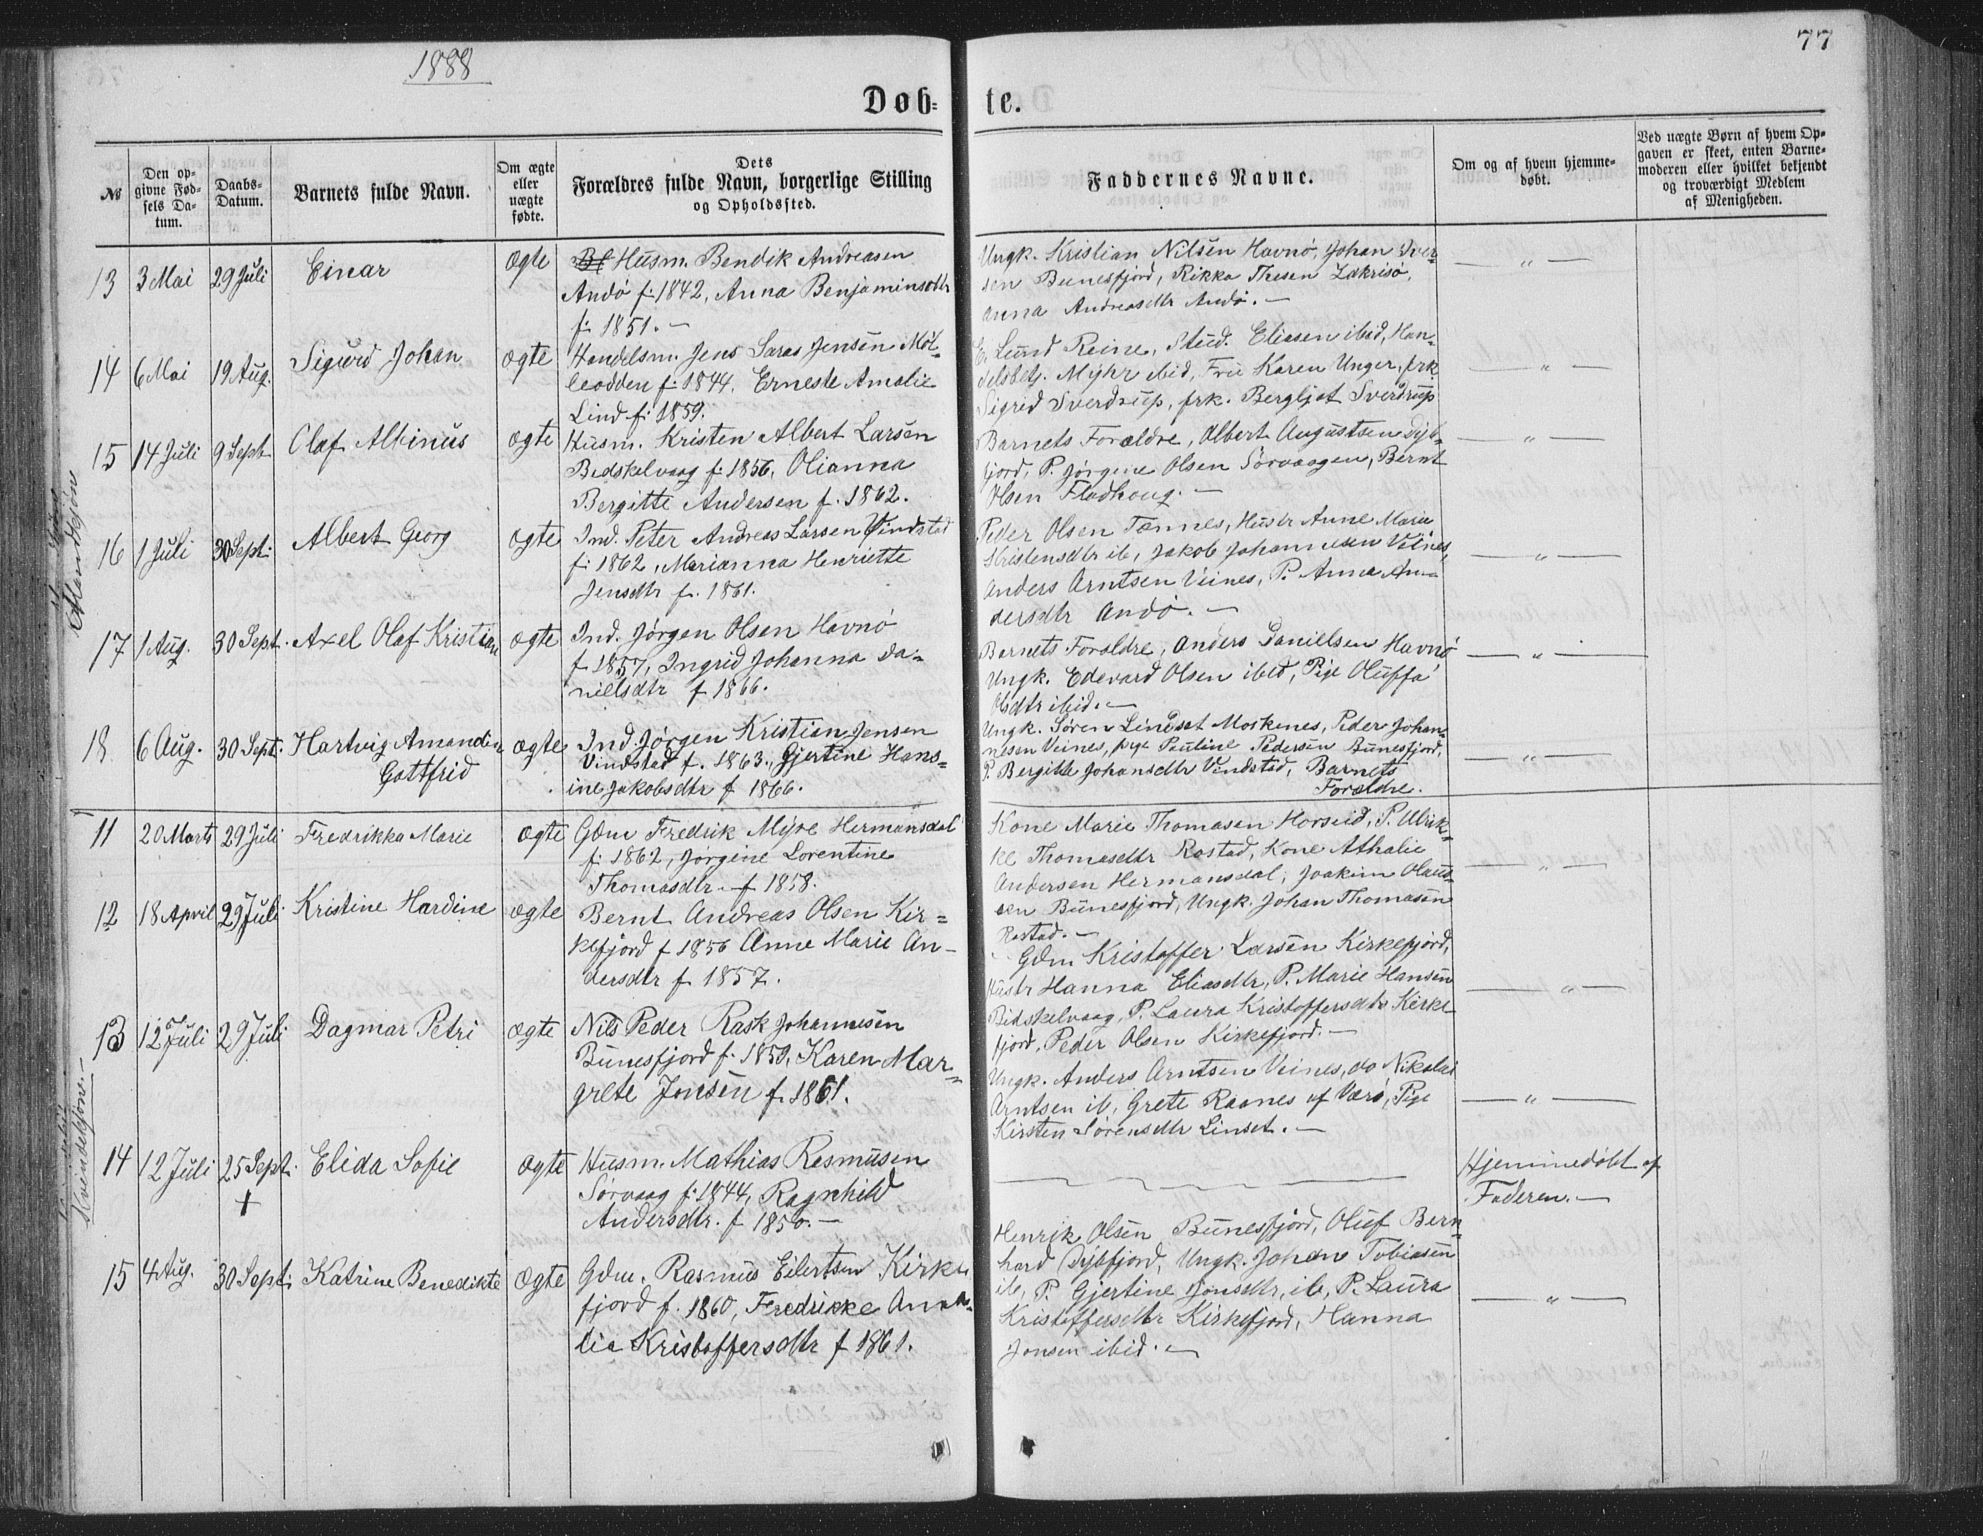 1888
77
Døb-
te.
№
Den op-
givne Fød-
sels Da-
tum.
Daabs-
Datum.
Barnets fulde Navn.
Om ægte
eller
uægte
fødte.
Dets
Forældres fulde Navn, borgerlige Stilling
og Opholdssted.
Faddernes Navne.
Om og af hvem hjemme-
døbt.
Ved uægte Børn af hvem Op-
gaven er skeet, enten Barne-
moderen eller hvilket bekjendt
og troværdigt Medlem
af Menigheden.
Mandkjøn
13 3 Mai 29 Juli Einar ægte Husm. Bendik Andreasen
Andø f. 1842, Anna Benjaminsdtr
f. 1851. —
Ungk. Kristian Nilsen Havnø, Johan Iver-
sen Bunesfjord, Rikka Thesen Zakrisø,
Anna Andreasdtr Andø. —
— „ —
14 6 Mai 19 Aug. Sigurd Johan ægte Handelsm. Jens Saras Jensen Mol-
leodden f. 1844, Erneste Amalie
Lind f. 1859.
E. Lund Reine, Stud. Eliasen ibid, Han-
delsbetj. Myhr ibid, Frü Karen Unger, frk.
Sigrid Sverdrup, frk. Bergljot Sverdrup
— „ —
15 14 Juli 9 Sept Olaf Albinus ægte Husm. Kristen Albert Larsen
Bedskelvaag f. 1856, Olianna
Bergitte Andersen f. 1862.
Barnets Forældre, Albert Augustsen Dyb-
fjord, P. Jørgene Olsen Sørvaagen, Bernt
Olsen Fladhoug. —
— „ —
16 1 Juli 30 Sept. Albert Georg ægte Ind. Peter Andreas Larsen Vindstad
f. 1862, Marianna Henriette
Jensdtr f. 1861.
Peder Olsen Tennes, Hustr Anne Marie
Kristensdtr ib, Jakob Johannesen Veines,
Anders Arntsen Veines, P. Anna An-
dersdtr Andø. —
— „ —
17 1 Aug. 30 Sept. Axel Olaf Kristian ægte Ind. Jørgen Olsen Havnø
f. 1857, Ingrid Johanna Da-
nielsdtr f 1866.
Barnets Forældre, Anders Danielsen Havnø
Ungk. Edevard Olsen ibid, Pige Oluffa
Olsdtr ibid. —
— „ —
18 6 Aug. 30 Sept. Hartvig Amandin ægte Ind. Jørgen Kristian Jensen
Gottfrid
Vindstad f. 1863., Gjertine Hans-
ine Jakobsdtr f 1866.
Ungk. Søren Lindset Moskenes, Peder Johan-
nesen Veines, pige Pauline Pedersen Bunesfjord,
P. Bergitte Johansdtr Vindstad, Barnets
Forældre.
— „ —
Kvindekjøn. —
11 20 Marts 29 Juli Fredrikka Marie ægte Gdm Fredrik Myre Hermansdal
f. 1862, Jørgine Lorentine
Thomasdtr. f 1858.
Kone Marie Thomasen Horseid, P. Ulrik-
ke Thomasdtr Rostad, Kone Athalie
Andersen Hermansdal, Joakim Olaus-
sen Bunesfjord, Ungk. Johan Thomasen
Rostad. —
— „ —
12 18 April 29 Juli Kristine Hardine ægte Bernt Andreas Olsen Kir-
kefjord f 1856 Anne Marie An-
dersdtr f 1857.
Gdm Kristoffer Larsen Kirkefjord,
Hustr Hanna Eliasdtr, P. Marie Hansen
Bidskelvaag, P. Laura Kristoffersdtr Kirke
fjord, Peder Olsen Kirkefjord. —
— „ —
13 12 Juli 29 Juli Dagmar Petri ægte Nils Peder Rask Johannesen
Bunesfjord f. 1859, Karen Mar-
grete Jonsen f. 1861.
Ungk. Anders Arntsen Veines, do Nikolai
Arntsen ib, Grete Raanes af Værø, Pige
Kirsten Sørensdtr Linset. —
— „ —
14 12 Juli 25 Sept. Elida Sofie ægte Husm. Mathias Rasmusen
Sørvaag f. 1844, Ragnhild
Andersdtr. f 1850. —
Hjemmedøbt af
Faderen. —
15 4 Aug. 30 Sept. Katrine Benedikte ægte Gdm. Rasmus Eilertsen Kirke
fjord f. 1860, Fredrikke Ama-
lia Kristoffersdtr f 1861.
Henrik Olsen Bunesfjord, Oluf Bern-
hard Dybfjord, Ungk. Johan Tobiasen
ib, P. Gjertine Jonsdtr, ib, P. Laura
Kristoffersdtr Kirkefjord, Hanna
Jonsen ibid. —
— „ —